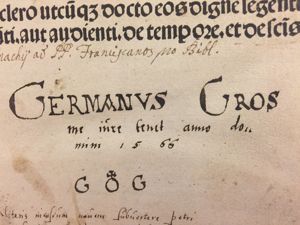 clero utcũqȝ docto eos digne legent
ti. aut audienti. de tempore. et de scis
ad PP Franciscanos Bibl.
GERMANVS GROS
me iure tenet anno do
mini 1566
G O G
petri